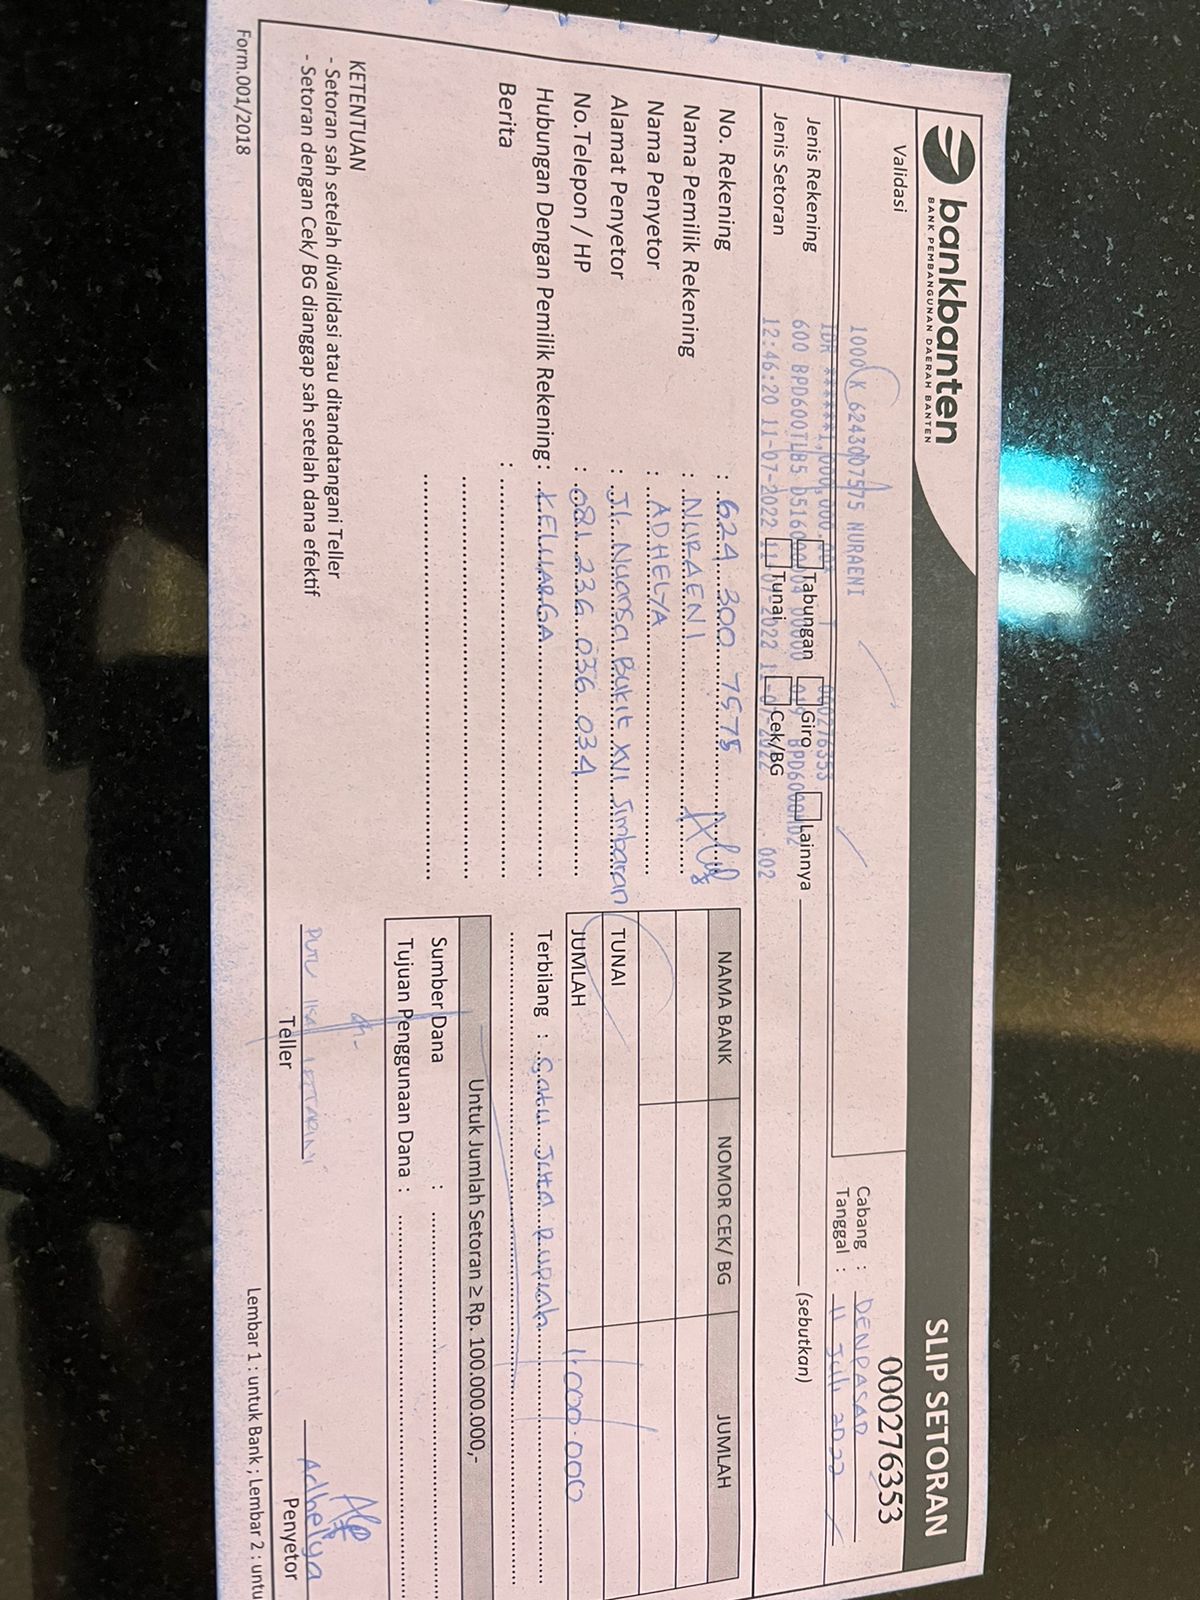 bankbanten
BANK PEMBANGUNAN DAERAH BANTEN
SLIP SETORAN
000276353
Validasi
1000 K 6243007575 NURAENI
IDR ******1,000,000.00 000276353
600 BPD600TLB5 D5160
12:46:20 11-07-2022 11-07-2022 11-07-2022 002
Cabang : DENPASAR
Tanggal : 11 Juli 2022
Jenis Rekening Tabungan Giro Lainnya (sebutkan)
Jenis Setoran Tunai Cek/BG
No. Rekening : 624 300 7575
Nama Pemilik Rekening : NURAENI
Nama Penyetor : ADHELYA
Alamat Penyetor : Jl. Nuansa Bukit XII Jimbaran
No.Telepon / HP : 081 236 036 034
Hubungan Dengan Pemilik Rekening : KELUARGA
Berita :
NAMA BANK NOMOR CEK/ BG JUMLAH
TUNAI
JUMLAH 1.000.000
Terbilang : Satu Juta Rupiah
Untuk Jumlah Setoran ≥ Rp. 100.000.000,-
Sumber Dana :
Tujuan Penggunaan Dana :
KETENTUAN
- Setoran sah setelah divalidasi atau ditandatangani Teller
- Setoran dengan Cek/ BG dianggap sah setelah dana efektif
Adhelya
Teller Penyetor
Form.001/2018
Lembar 1 : untuk Bank ; Lembar 2 : untu